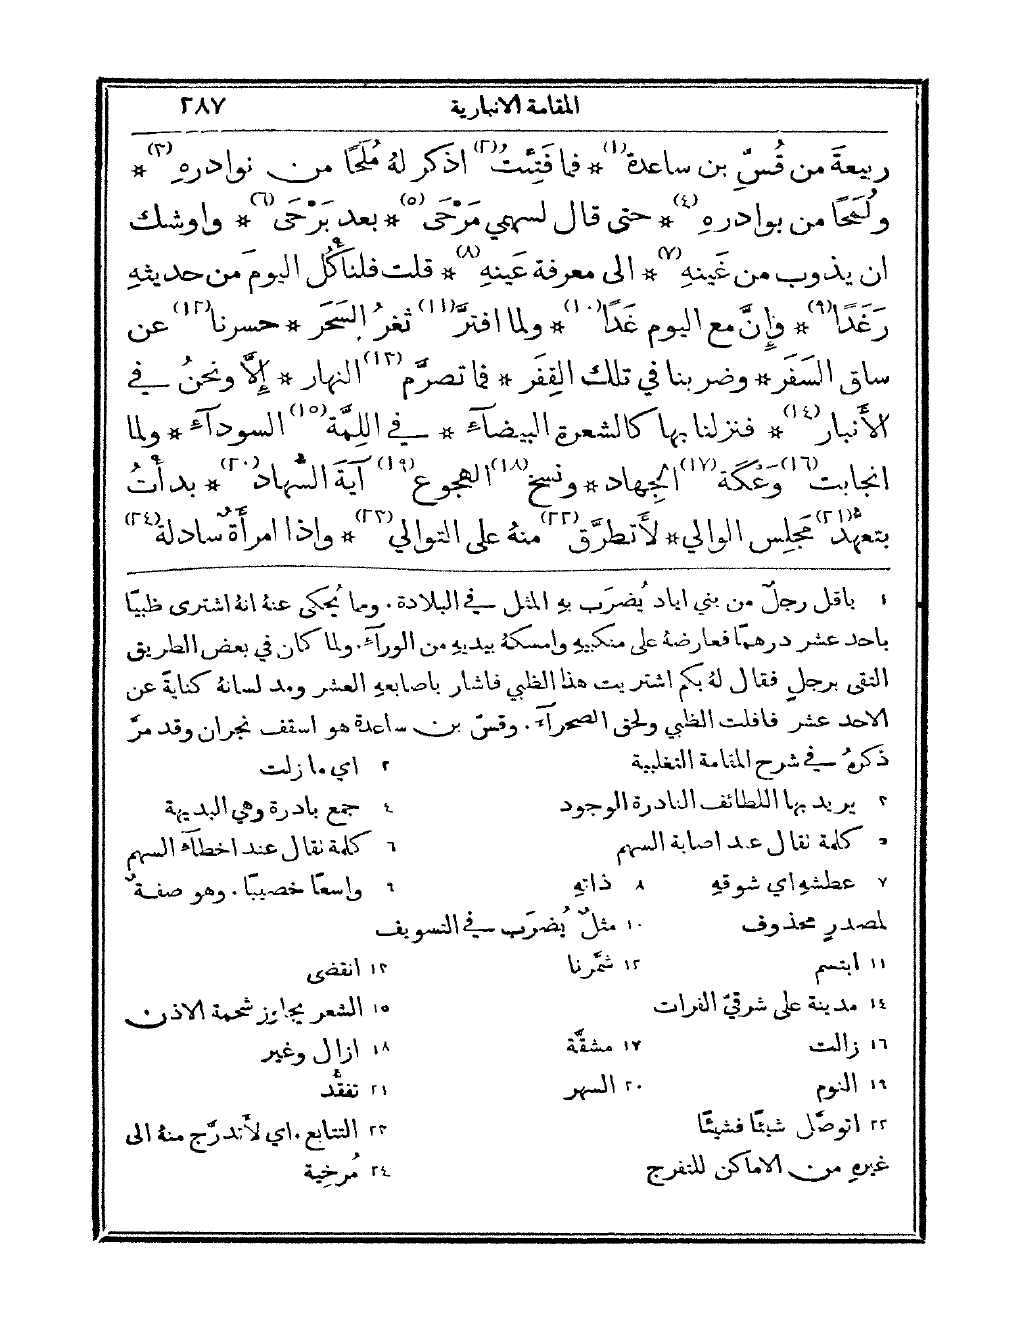 المقامة الانبارية ٢٨٧
ربيعةَ من قُسِّ بن ساعدة(١) * فما فَتِئتُ(٢) اذكر لهُ مُلَحًا من نوادرهِ(٣) *
ولُمَحًا من بوادرهِ(٤) * حتى قال لسهمي مَرْحَى(٥) * بعد بَرْحَى(٦) * واوشك
ان يذوب من غَينهِ(٧) * الى معرفة عَينهِ(٨) * قلت فلنأكُل اليومَ من حديثهِ
رَغَدًا(٩) * وإِنَّ مع اليوم غَدًا(١٠) * ولما افترَّ(١١) ثغرُ السَحَر * حسرنا(١٢) عن
ساق السَفَر * وضربنا في تلك القِفَر * فما تصرَّم(١٣) النهار * إلَّا ونحنُ في
الأَنبار(١٤) * فنزلنا بها كالشعرة البيضآء * في اللِمَّة(١٥) السودآء * ولما
انجابت(١٦) وَعْكَة(١٧) الجِهاد * ونسخ(١٨) الهجوع(١٩) آيَةَ السُّهاد(٢٠) * بدأْتُ
بتعهُّد(٢١) مَجلِس الوالي * لأَتطرَّق(٢٢) منهُ على التوالي(٢٣) * واذا امرأَةٌ سادلة(٢٤)
١ باقل رجلٌ من بني اياد يُضرَب بهِ المثل في البلادة. ومما يُحكى عنهُ انهُ اشترى ظبيًا
باحد عشر درهمًا فعارضهُ على منكبيهِ وامسكهُ بيديهِ من الورآء. ولما كان في بعض الطريق
التقى برجلٍ فقال لهُ بكم اشتريت هذا الظبي فاشار باصابعهِ العشر ومد لسانهُ كنايةً عن
الاحد عشر فافلت الظبي ولحق الصحرآء. وقسّ بن ساعدة هو اسقف نجران وقد مرَّ
ذكرهُ في شرح المقامة التغلبية ٢ اي ما زلت
٣ يريد بها اللطائف النادرة الوجود ٤ جمع بادرة وهي البديهة
٥ كلمة تقال عند اصابة السهم ٦ كلمة تقال عند اخطآء السهم
٧ عطشهِ اي شوقهِ ٨ ذاتهِ ٩ واسعًا خصيبًا. وهو صفةٌ
لمصدرٍ محذوف ١٠ مثلٌ يُضرَب في التسويف
١١ ابتسم ١٢ شمَّرنا ١٣ انقضى
١٤ مدينة على شرقيّ الفرات ١٥ الشعر يجاوز شحمة الاذن
١٦ زالت ١٧ مشقَّة ١٨ ازال وغير
١٩ النوم ٢٠ السهر ٢١ تفقُّد
٢٢ اتوصَّل شيئًا فشيئًا ٢٣ التتابع. اي لأَتدرَّج منهُ الى
غيرهِ من الاماكن للتفرج ٢٤ مُرخِية